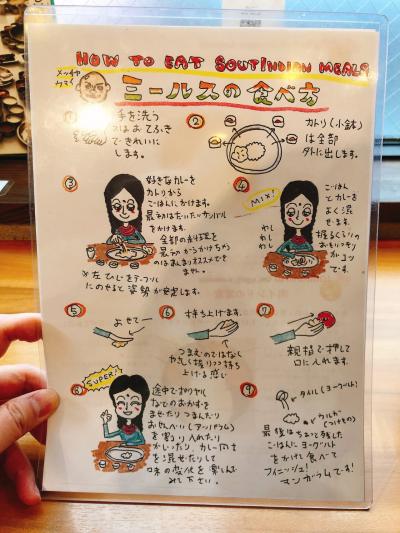 HOW TO EAT SOUTINDIAN MEALS
メッチャ
ウマイ
ミールスの食べ方
① 手を洗う
又はおてふき
できれいに
します。
②
カトリ(小鉢)
は全部
外に出します。
③
好きなカレーを
カトリから
ごはんにかけます。
最初はだいたいサンバル
をかけます。
全部のお料理を
最初からかけちゃう
のはあんまりオススメでき
ません。
※左ひじをテーブル
にのせると姿勢が安定します。
④
MIX!
ごはん
とカレーを
よく混
ぜます。
握るくらい
のおもいっきり
がコツ
です。
わし
わし
わし
⑤ よせてー
⑥ 持ち上げます。
つまえのではなく
やさしく持ち
上げる感じ
⑦
親指で押して
口に入れます。
⑧
SUPER!
途中でポリヤル
などのおかずを
まぜたりつまんだり
おせんべい(アッパラム)
を割り入れたり
かじったり、カレー同士
を混ぜたりして
味の変化を楽しん
で下さい。
⑨
タイル(ヨーグルト)
ウルガ
(つけもの)
最後はちょっと残した
ごはんにヨーグルト
をかけ食べて
フィニッシュ!
マンガラムです!